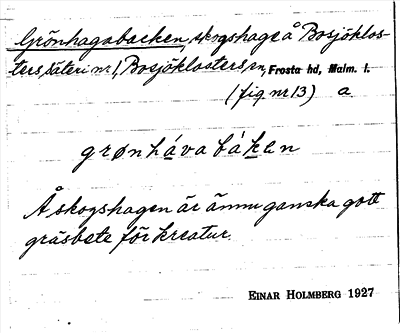 Grönhagabacken, skogshage å Bosjöklos-
ters säteri nr 1, Bosjöklosters sn, Frosta hd, Malm. l.
(fig. nr 13) a.
grønháva bákan
Å skogshagen är ännu ganska gott
gräsbete för kreatur.
EINAR HOLMBERG 1927